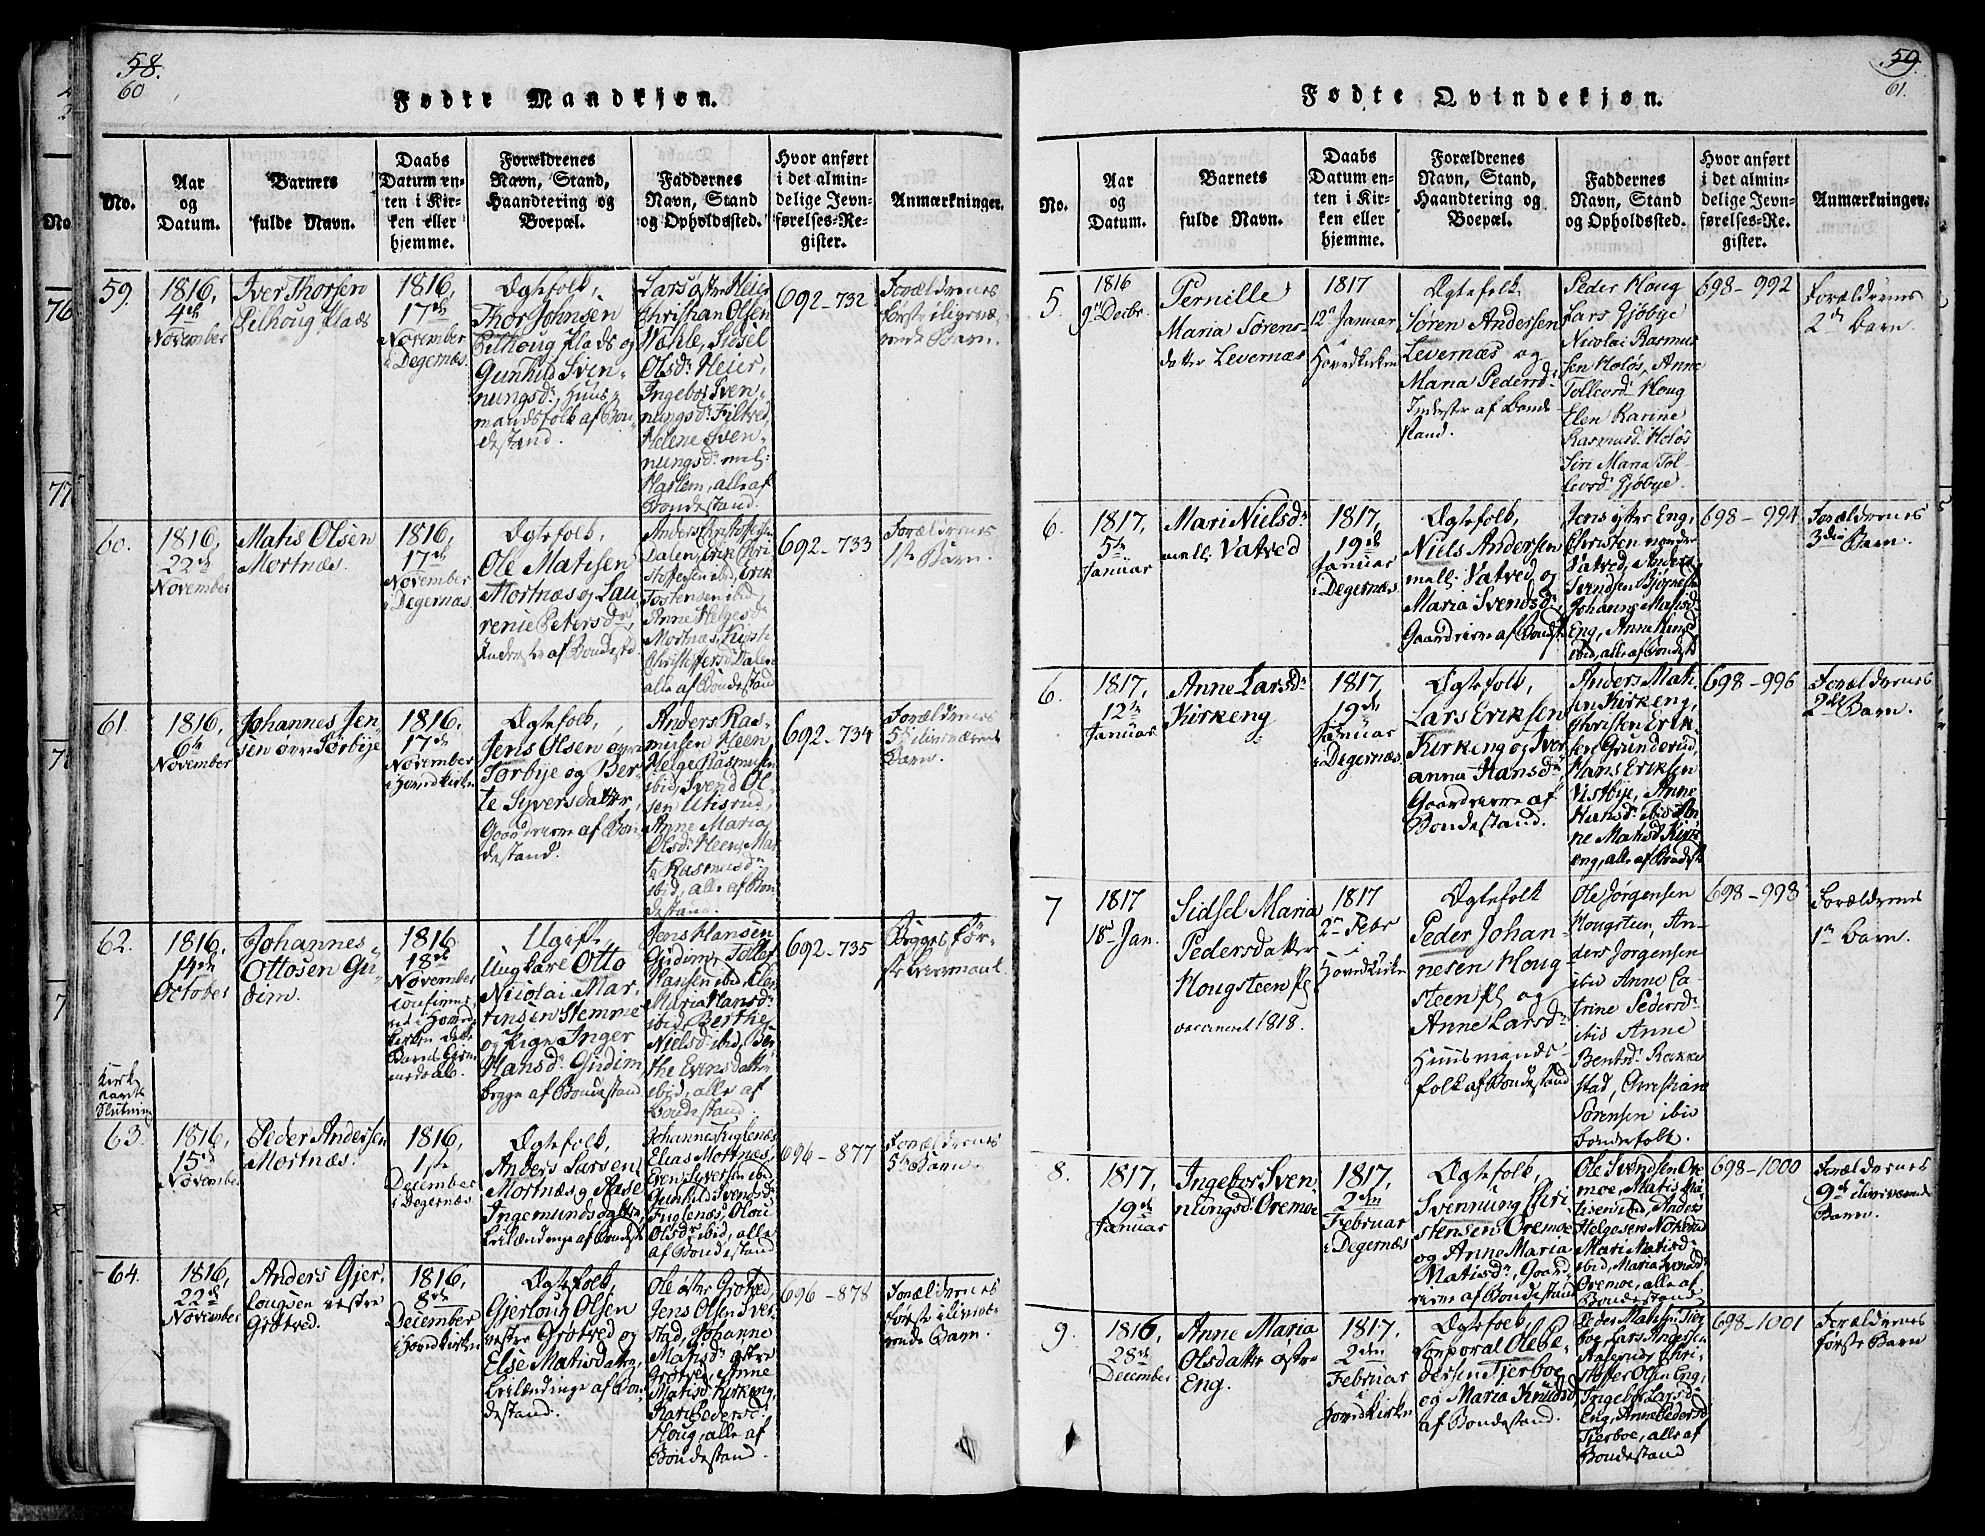 58.
60
Fødte Mandkjøn.
No.
Aar
og
Datum.
Barnets
fulde Navn.
Daabs
Datum en-
ten i Kir-
ken eller
hjemme.
Forældrenes
Navn, Stand,
Haandtering og
Boepæl.
Faddernes
Navn, Stand
og Opholdssted.
Hvor anført
i det almin-
delige Jevn-
førelses-Re-
gister.
Anmærkninger.
59.
1816,
4de
November
Iver Thorsen
Pilhoug Plads
1816,
17de
November
i Degernæs.
Ægtefolk,
Thor Johnsen
Pilhoug Plads og
Gunhild Sven-
nungsdr, Huus-
mandsfolk af Bon-
destand.
Lars østre Heier
Christian Olsen
Wahle, Sidsel
Olsdr Heier,
Ingebor Sven-
nungsdr Filtved,
Helene Sven-
nungsdr mel:
Haslem, alle af
Bondestand.
692-732
Forældrenes
første ilivevæ-
rende Barn.
60.
1816,
22de
November
Matis Olsen
Mortnæs.
1816,
17de
November
i Degernæs.
Ægtefolk,
Ole Matisen
Mortnæs og Lau
renie Petersdr,
Inderste af Bondestd
Anders Christophersen
Dalen, Erik Chri
stoffersen ibid, Erik
Torstensen ibid,
Anne Helgesdr
Mortnæs, Kirsti
Christoffersdr Dalen
alle af Bondestand
692-733
Forældrenes
1ste Barn.
61.
1816,
6te
November
Johannes Jen-
sen øvre Torbye
1816,
17de
November
i Hovedkirken
Ægtefolk,
Jens Olsen øvre
Torbye og Ber-
te Syversdatter,
Gaardeiere af Bon-
destand.
Anders Ras-
mussen Heen
Helge Rasmusen
ibid, Svend Ol-
sen Utisrud,
Anne Maria
Olsdr Heen, Mar
te Rasmusdr
ibid, alle af Bon
destand.
692-734
Forældrenes
5te ilivværende
Barn.
62.
1816,
14de
October
Johannes
Ottosen Gu-
dim.
1816
18de
November
Ugift.
Ungkarl Otto
Nicolai Mar-
tinsen Stemme
og Pige Inger
Hansdr Gudim
begge af Bondestand
Jens Hansen
Gudim, Tollef
Hansen ibid, Elen
Maria Hansdr
ibid, Berthe
Nielsdr ibid, Ber-
the Evensdatter
ibid, alle af
Bondestand.
692-735
Begges før-
ste Leiermaal.
Kirke-
aarets
Slutning
63.
1816,
15de
November
Peder Andersen
Mortnæs.
1816,
1ste
December
i Degernæs
Ægtefolk,
Anders Larsen
Mortnæs og Aase
Ingemundsdatter,
af Bondest
Johannes Fuglenæs
Elias Mortnæs,
Even Syversen ibid,
Gunhild Svensdr
Fuglenæs, Olou
Olsdr ibid, alle
af Bondestand
696-877
Forældrenes
5te Barn.
64.
1816,
22de
November
Anders Gjer-
lougsen vestre
Grøtved.
1816,
8de
December
i Hovedkirken
Ægtefolk,
Gjerloug Olsen
vestre Grøtved og
Else Matisdatter,
af Bon-
destand.
Ole østre Grøtved,
Jens Olsen Sver-
stad, Johanne
Matisdr østre
Grøtved, Anne
Matisd Kirkeng,
Kari Pedersdr
Houg, alle af
Bondestand.
696-878
Forældrenes
første ilivevæ-
rende Barn.
59
61.
Fødte Qvindekjøn.
No.
Aar
og
Datum.
Barnets
fulde Navn.
Daabs
Datum en-
ten i Kir-
ken eller
hjemme.
Forældrenes
Navn, Stand,
Haandtering og
Boepæl.
Faddernes
Navn, Stand
og Opholdssted.
Hvor anført
i det almin-
delige Jevn-
førelses-Re-
gister.
Anmærkninger.
5.
1816
9de Decbr.
Pernille
Maria Sørens-
datter Levernæs
1817
12te Januar
i
Hovedkirken
Ægtefolk
Søren Andersen
Levernæs og
Maria Pedersdr
Inderster af Bonde
stand.
Peder Houg
Lars Gjøbye
Nicolai Rasmus
sen Holøs, Anne
Tollevsdr Houg
Elen Karine
Rasmusdr Holøs
Siri Maria Tol-
levsdr Gjøbye.
698-992
Forældrenes
2det Barn.
6.
1817,
5te
Januar
Mari Nielsdr
mell. Vatved
1817,
19de
Januar
i Degernæs
Ægtefolk,
Niels Andersen
mell: Vatved og
Maria Svendsdr,
Gaardeiere af Bondest
Jens østre Eng,
Christen nordre
Vatved, Anders
Svendsen Bjørnestad
Johanne Matisdr
Eng, Anne Hansdr
ibid, alle af Bondestd
698-994
Forældrenes
3die Barn.
6.
1817,
12te
Januar
Anne Larsdr
Kirkeng
1817,
19de,
Januar
i Degernæs
Ægtefolk,
Lars Eriksen
Kirkeng og Iver
anna Hansdr,
Gaardeiere af
Bondestand.
Anders Mati
sen Kirkeng,
Christen Erik-
sen Grunderud,
Hans Eriksen
Vistbye, Anne
Hansdr ibid An-
ne Matisdr Kirk
eng, alle af Bondest
698-996
Forældrenes
2det Barn.
7
1817
18de Jan.
Sidsel Maria
Pedersdatter
Hougsteen Pl
vaccineret 1818.
1817
2den Febr
i
Hovedkirken
Ægtefolk
Peder Johan
nesen Houg
steen Pl og
Anne Larsdr
Huusmands-
folk af Bondestand
Ole Jørgensen
Hougsteen, An-
ders Jørgensen
ibid Anne Ca-
trine Pedersdr
ibid Anne
Bentsdr Rakke
stad, Christian
Sørensen ibid
Bondefolk.
698-998
Forældrenes
1ste Barn.
8.
1817,
19de
Januar
Ingebor Sven
nungsdr Oremoe
1817,
2den
Februar
i Degernæs
Ægtefolk,
Svennung Chri
stensen Oremoe
og Anne Maria
Matisdr, Gaard
eiere af Bondestand
Ole Svendsen Ore
moe, Matis Ma-
tisen ibid, Anders
Helgesen Nøkerud
Mari Matisdr
ibid, Maria Svendsdr
Oremoe, alle af
Bondestand
698-1000
Forældrenes
9de ilivværende
Barn.
9.
1816,
28de
December
Anne Maria
Olsdatter østre
Eng.
1817.
2den
Februar
i
Hovedkirken
Ægtefolk
Corporal Ole Pe-
dersen Tjerboe
og Maria Knudsdr
af Bondestand.
Peder Matisen Tjer
boe, Lars Andersen
Aaserud, Chri-
stoffer Olsen Eng,
Ingebor Larsdr
Eng, Anne Pedersdr
Tjerboe, alle af
Bondestand
698-1001
Forældrenes
første Barn